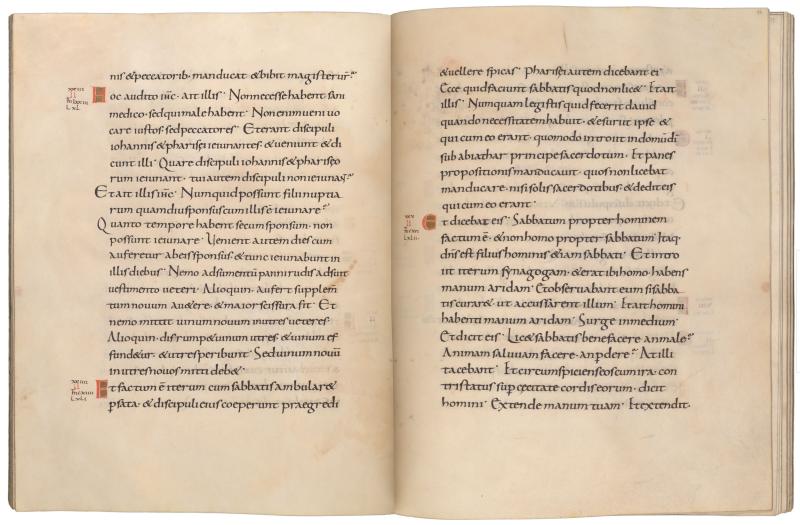 nis &peccatorib· manducat &bibit magister ur̄·
oc audito ih̄c· ait illis· Non necesse habent sani
medico· sed qui male habent· Non enim ueni uo
care iustos· sed peccatores· Et erant discipuli
iohannis &pharisei ieiunantes· &ueniunt &di
cunt illi· Quare discipuli iohannis &phariseo
rum ieiunant· tui autem discipuli non ieiunant·
Et ait illis ih̄c· Numquid possunt filii nuptia
rum quamdiu sponsus cum illis ē ieiunare·
Quanto tempore habent secum sponsum· non
possunt ieiunare· Uenient autem dies cum
auferetur ab eis sponsus· &tunc ieiunabunt in
illis diebus· Nemo adsumentum panni rudis adsuit
uestimento ueteri· Alioquin· aufert supplem̄
tum nouum a u&ere· &maior scissura fit· Et
nemo mittit uinum nouum in utres ueteres·
Alioquin· disrumpet uinum utres· &uinum ef
fund&ur· &utres peribunt· Sed uinum nouū
in utres nouos mitti deb&·
Et factum ē iterum cum sabbatis ambular&
p sata· &discipuli eius coeperunt praegredi
&uellere spicas· Pharisei autem dicebant ei·
Ecce quid faciunt sabbatis quod non lic&· Et ait
illis· Numquam legistis quid fecerit dauid
quando necessitatem habuit· &esurit ipse &
qui cum eo erant· quomodo introiit in domū dī
sub abiathar principe sacerdotum· Et panes
propositionis manducauit· quos non licebat
manducare· nisi solis sacerdotibus· &dedit eis
qui cum eo erant·
Et dicebat eis· Sabbatum propter hominem
factum ē· &non homo propter sabbatum· Itaq
dn̄s est filius hominis &iam sabbati· Et intro
iit iterum synagogam· &erat ibi homo· habens
manum aridam· Et obseruabant eum si sabba
tis curar&· ut accusarent illum· Et ait homini
habenti manum aridam· Surge in medium·
Et dicit eis· Lic& sabbatis bene facere an male·
Animam saluam facere· an pdere· At illi
tacebant· Et circumspiciens eos cum ira· con
tristatus sup cecitate cordis eorum· dicit
homini· Extende manum tuam· Et extendit·